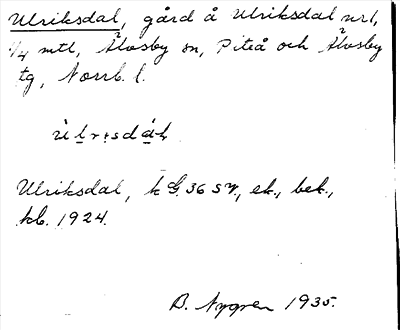 Ulriksdal, gård å Ulriksdal nr 1,
1/4 mtl, Älvsby sn, Piteå och Älvsby
tg, Norrb. l.
Ulriksdal, k G. 36 SV, ek., bek.,
kb. 1924.
B. Nygren 1935.